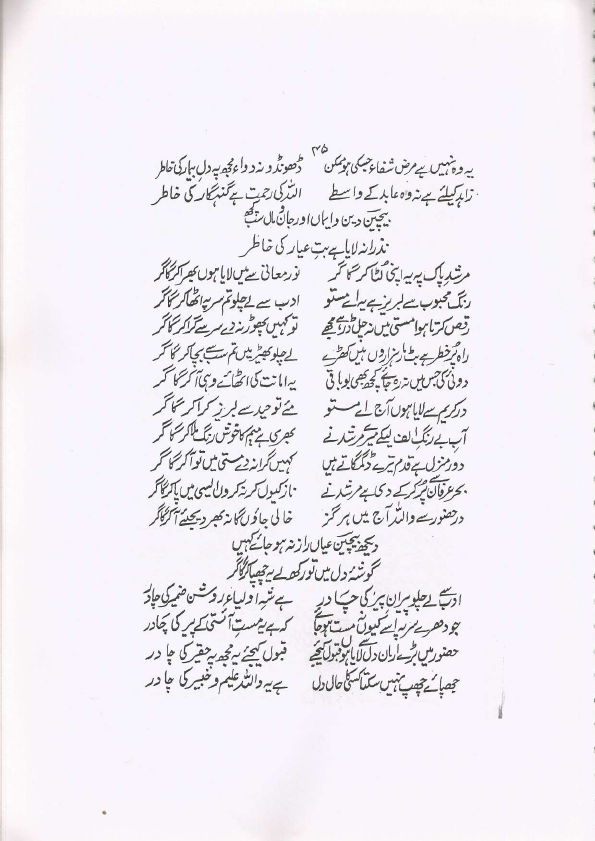 ۳۵
یہ وہ نہیں ہے مرض شفاء جسکی ہو ممکن ڈھونڈو نہ دواء مجھ پہ دلِ بیمار کی خاطر
زاہد کیلئے ہے نہ وہ عابد کے واسطے اللہ کی رحمت ہے گنہگار کی خاطر
بیچین دین و ایماں اور جان و مال سب کچھ
نذرانہ لایا ہے بتِ عیار کی خاطر
مرشدِ پاک پہ یہ اپنی لٹا کر گاگر نور معانی سے میں لایا ہوں بھرا کر گاگر
رنگ محبوب سے لبریز ہے یہ اے مستو ادب سے لے چلو تم سر پہ اٹھا کر گاگر
رقص کرتا ہوا مستی میں نہ چل ڈر ہے مجھے تو کہیں پھوڑ نہ دے سر سے گرا کر گاگر
راہ پُر خطر ہے بٹ مار ہزاروں ہیں کھڑے لے چلو بھیڑ میں تم سب سے بچا کر گاگر
دوئی کی جس میں نہ رہ جائے کچھ بھی بو باقی یہ امانت کی اٹھائے وہی آ کر گاگر
درِ کریم سے لایا ہوں آج اے مستو مئے توحید سے لبریز کرا کر گاگر
آبِ بے رنگ الف لیکے میرے مرشد نے بھری ہے میم کا خوش رنگ ملا کر گاگر
دور منزل ہے قدم تیرے ڈگمگاتے ہیں کہیں گرا نہ دے مستی میں تو آ کر گاگر
بحرِ عرفان سے پُر کر کے دی ہے مرشد نے ناز کیوں کر نہ کروں ایسی میں پا کر گاگر
درِ حضور سے واللہ آج میں ہرگز خالی جاؤں گا نہ بھر دیجئے آ کر گاگر
دیکھ بیچین عیاں راز نہ ہو جائے کہیں
گوشۂ دل میں تو رکھ لے یہ چھپا کر گاگر
ادب سے لے چلو پیران پیر کی چادر ہے شہِ اولیاء روشن ضمیر کی چادر
جو دھرے سر پہ اسے کیوں نہ مست ہو جائے کہ ہے یہ مستِ آلستی کے پیر کی چادر
حضور میں بڑے ارمان دل سے لایا ہوں قبول کیجئے قبول کیجئے یہ مجھ پہ حقیر کی چادر
چھپائے چھپ نہیں سکتا کسی کا حال دل ہے یہ واللہ علیم و خبیر کی چادر